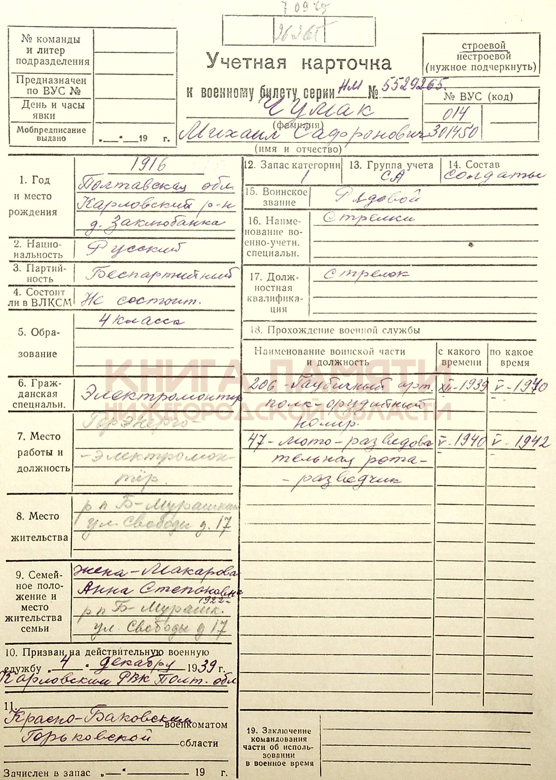 70925
26265
№ команды
и литер
подразделения
Предназначен
по ВУС №
День и часы
явки
Мобпредписание
выдано „ — “ 19 г.
строевой
нестроевой
(нужное подчеркнуть)
Учетная карточка
к военному билету серии НМ № 5529265.
№ ВУС (код)
Чумак
(фамилия)
014
Михаил Сафронович
301450
(имя и отчество)
1. Год
и место
рождения
1916
Полтавская обл
Карловский р-н
2. Нацио-
нальность
Русский
3. Партий-
ность
Беспартийный
4. Состоит
ли в ВЛКСМ
Не состоит.
5. Обра-
зование
4 класса
6. Граж-
данская
специальн.
Электромонтер
7. Место
работы и
должность
ГорЭнерго
-Электромон-
тёр.
8. Место
жительства
р п Б-Мурашкин
ул. Свободы д. 17
9. Семей-
ное поло-
жение и
место
жительства
семьи
жена-Макарова
Анна Степоновна
1922-
рп Б-Мурашк.
ул. Свободы д 17
10. Призван на действительную военную
службу „ 4 “ декабру 1939 г.
Карловский РВК Полт. обл
11.
Красно-Баковским военкоматом
Горьковской области
Зачислен в запас „ — “ 19 г.
12. Запас категории
1
13. Группа учета
СА
14. Состав
солдаты
15. Воинское
звание
Рядовой
16. Наиме-
нование во-
енно-учетн.
специальн.
Стрелки
17. Долж-
ностная
квалифика-
ция
Стрелок
18. Прохождение военной службы
Наименование воинской части
и должность
с какого
времени
по какое
время
206-Гаубичный арт.
XII.1939
V-1940
полк-орудийный
номер.
47-мото-разведова
V-1940
V-1942
тельная рота-
-разведчик
19. Заключение
командования
части об исполь-
зовании
в военное время
КНИГА ПАМЯТИ
НИЖЕГОРОДСКОЙ ОБЛАСТИ